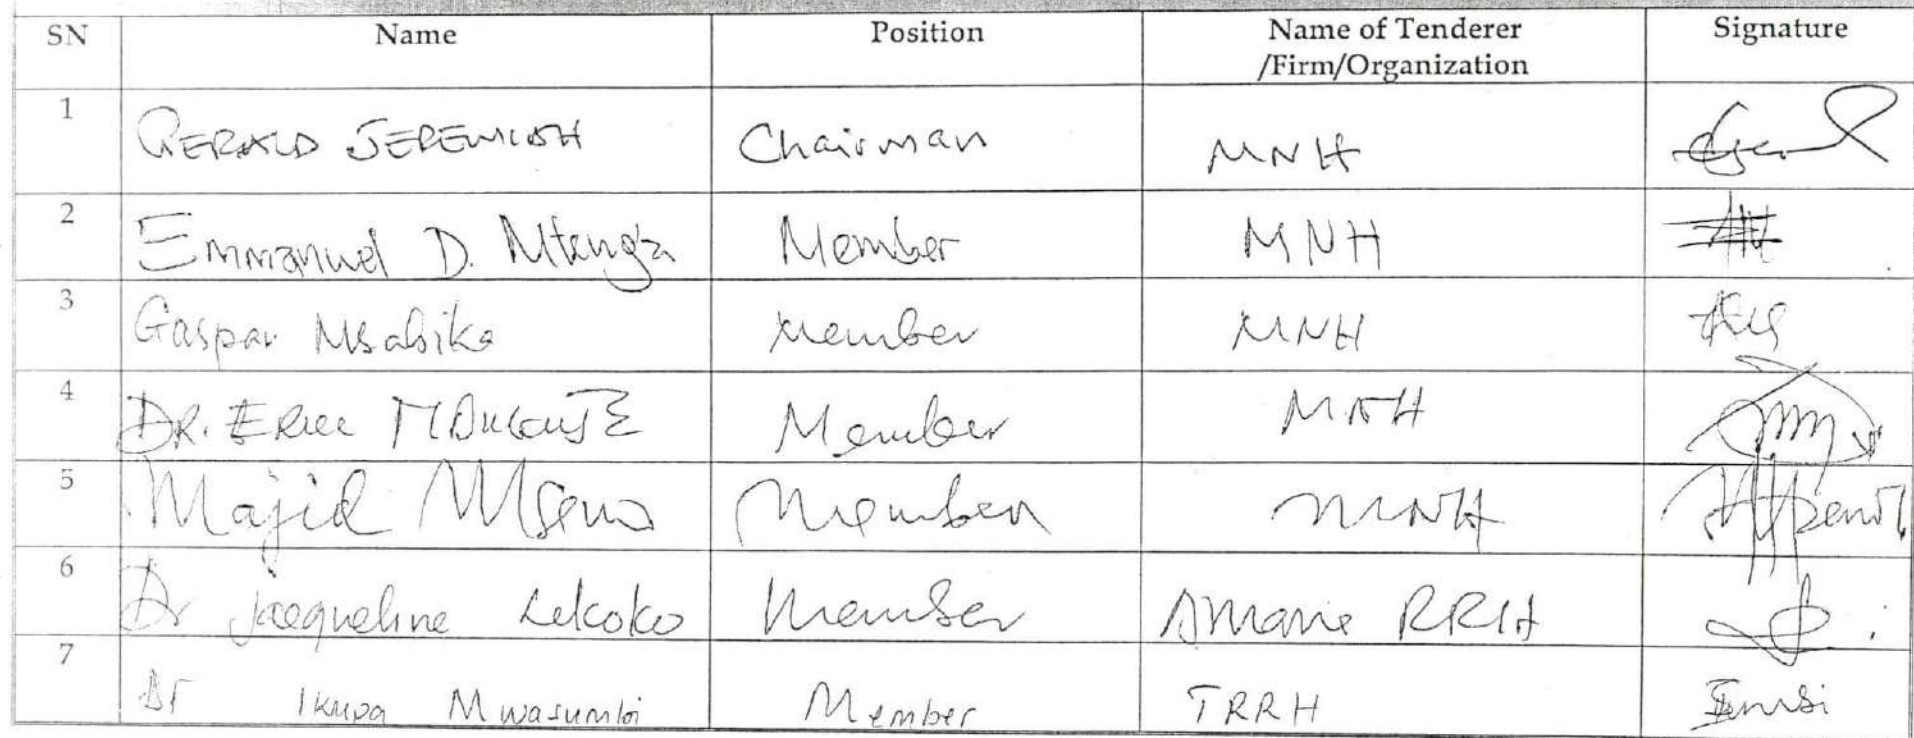 SN Name Position Name of Tenderer /Firm/Organization Signature
1 GERALD JEREMIAH Chairman MNH
2 Emmanuel D. Mtenga Member MNH
3 Gaspar Msabika Member MNH
4 DR. ERICK Member MNH
5 Majid Member MNH
6 Dr Jacqueline Lekoko Member Amana RRH
7 Dr Ikupa Mwasumbi Member TRRH